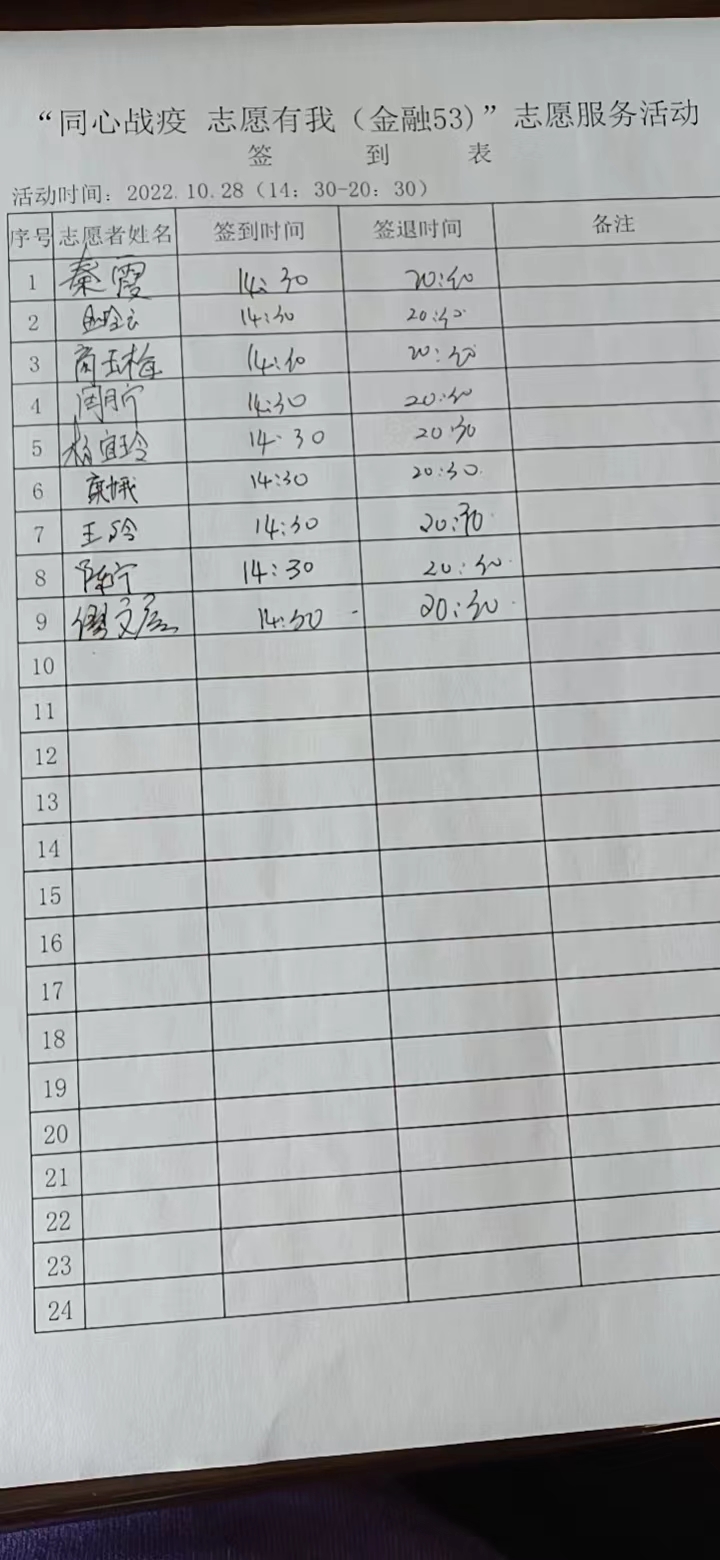 “同心战疫 志愿有我（金融53)”志愿服务活动
签 到 表
活动时间：2022.10.28（14：30-20：30）
序号 志愿者姓名 签到时间 签退时间 备注
1 秦霞 14:30 20:30
2 14:30 20:30
3 商玉梅 14:30 20:30
4 闫月宁 14:30 20:30
5 杨宜玲 14:30 20:30
6 14:30 20:30
7 王玲 14:30 20:30
8 陈宁 14:30 20:30
9 缪文 14:30 20:30
10
11
12
13
14
15
16
17
18
19
20
21
22
23
24